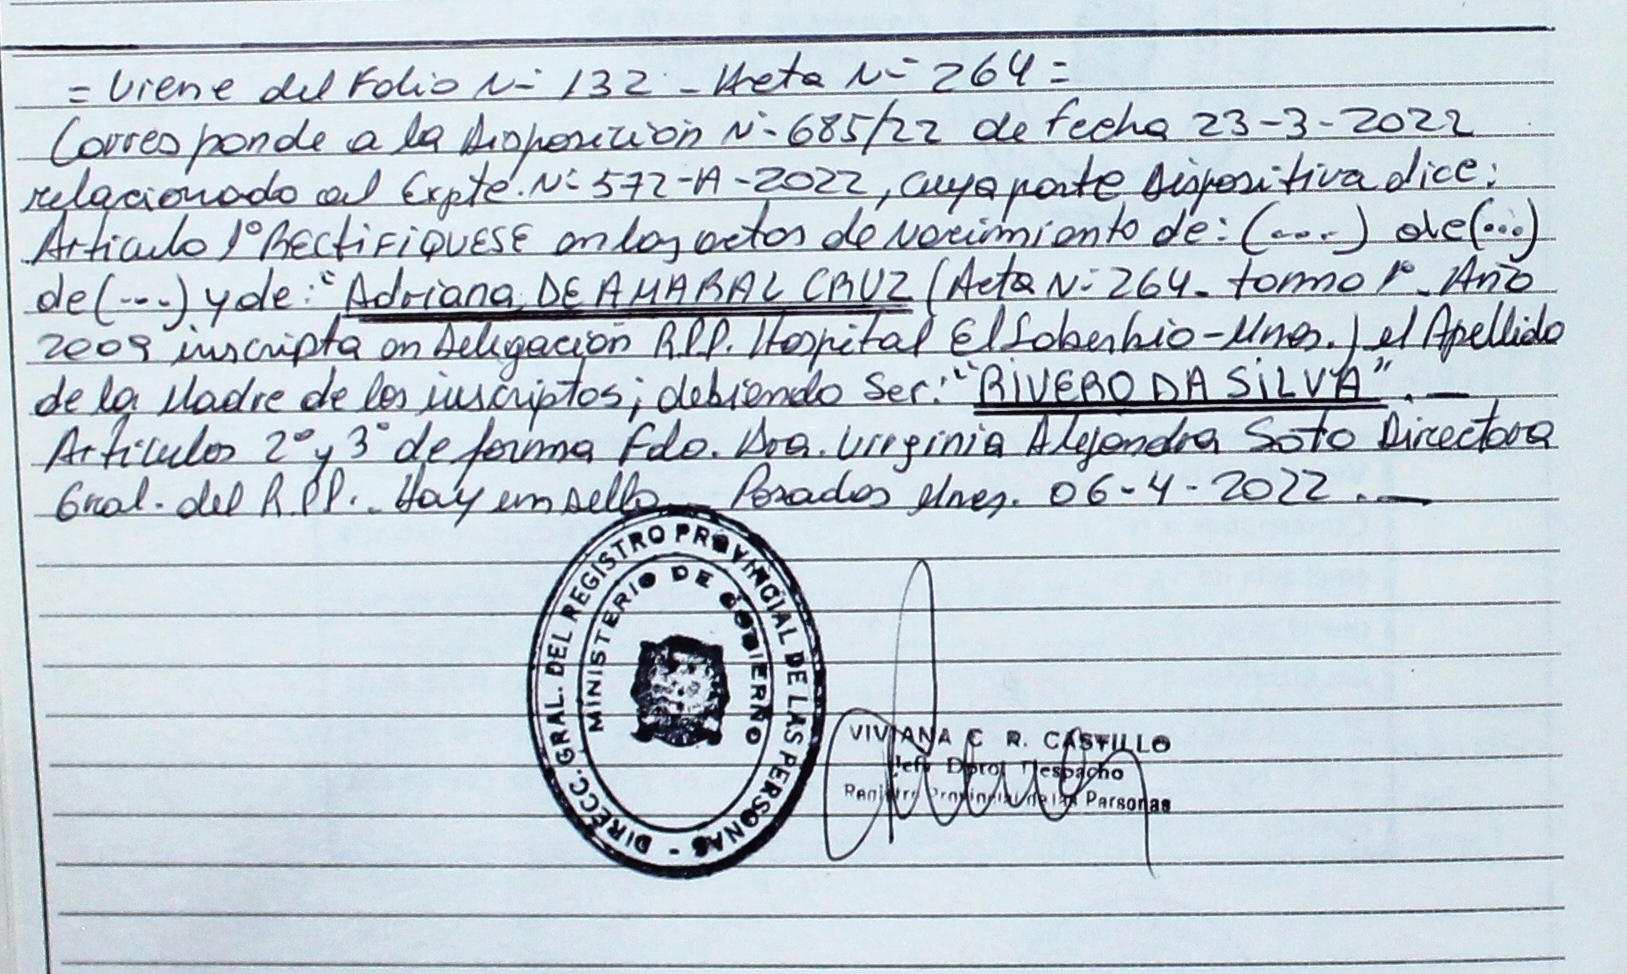 = Viene del Folio Nº 132 - Acta Nº 264 =
Corresponde a la Disposición Nº 685/22 de fecha 23-3-2022
relacionado al Expte. Nº 572-A-2022, cuya parte Dispositiva dice:
Artículo 1º RECTIFIQUESE en las actas de Nacimiento de: (...) de (...)
de (...) y de: "Adriana DE AMARAL CRUZ (Acta Nº 264 - tomo 1º - Año
2009 inscripta en Delegación R.P.P. Hospital El Soberbio - Mnes.) el Apellido
de la Madre de los inscriptos; debiendo ser: "RIVERO DA SILVA". —
Artículos 2º y 3º de forma Fdo. Dra. Virginia Alejandra Soto Directora
Gral. del R.P.P. - Hay un sello - Posadas Mnes. 06-4-2022. —
DIRECC. GRAL. DEL REGISTRO PROVINCIAL DE LAS PERSONAS -
MINISTERIO DE GOBIERNO
VIVIANA C. R. CASTILLO
Jefe Dpto. Despacho
Registro Provincial de las Personas